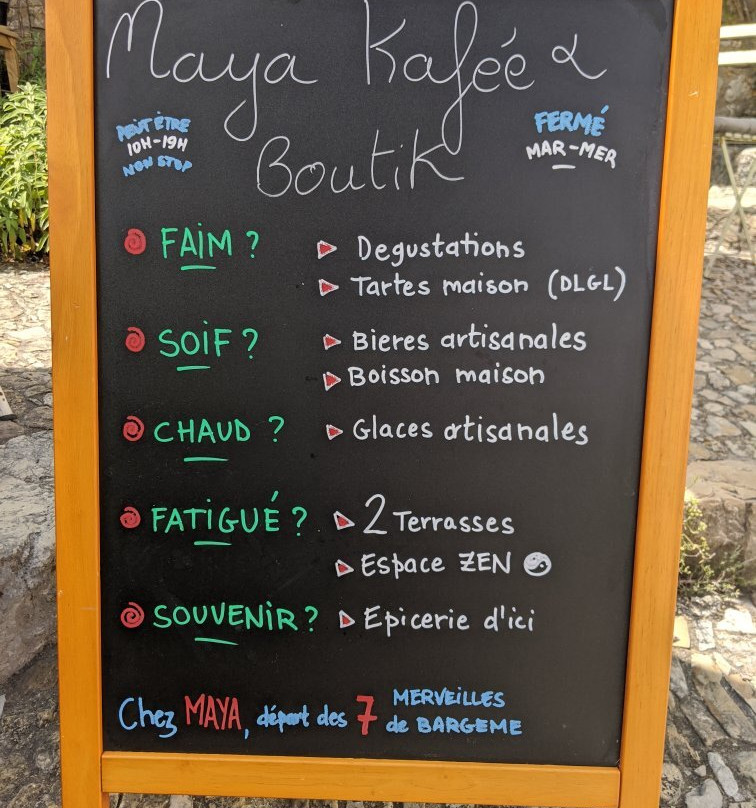 Maya Kafée &
Boutik
PEUT ÊTRE
10H-19H
NON STOP
FERMÉ
MAR-MER
FAIM ? Degustations
Tartes maison (DLGL)
SOIF ? Bieres artisanales
Boisson maison
CHAUD ? Glaces artisanales
FATIGUÉ ? 2 Terrasses
Espace ZEN
SOUVENIR ? Epicerie d'ici
Chez MAYA, départ des 7 MERVEILLES
de BARGEME